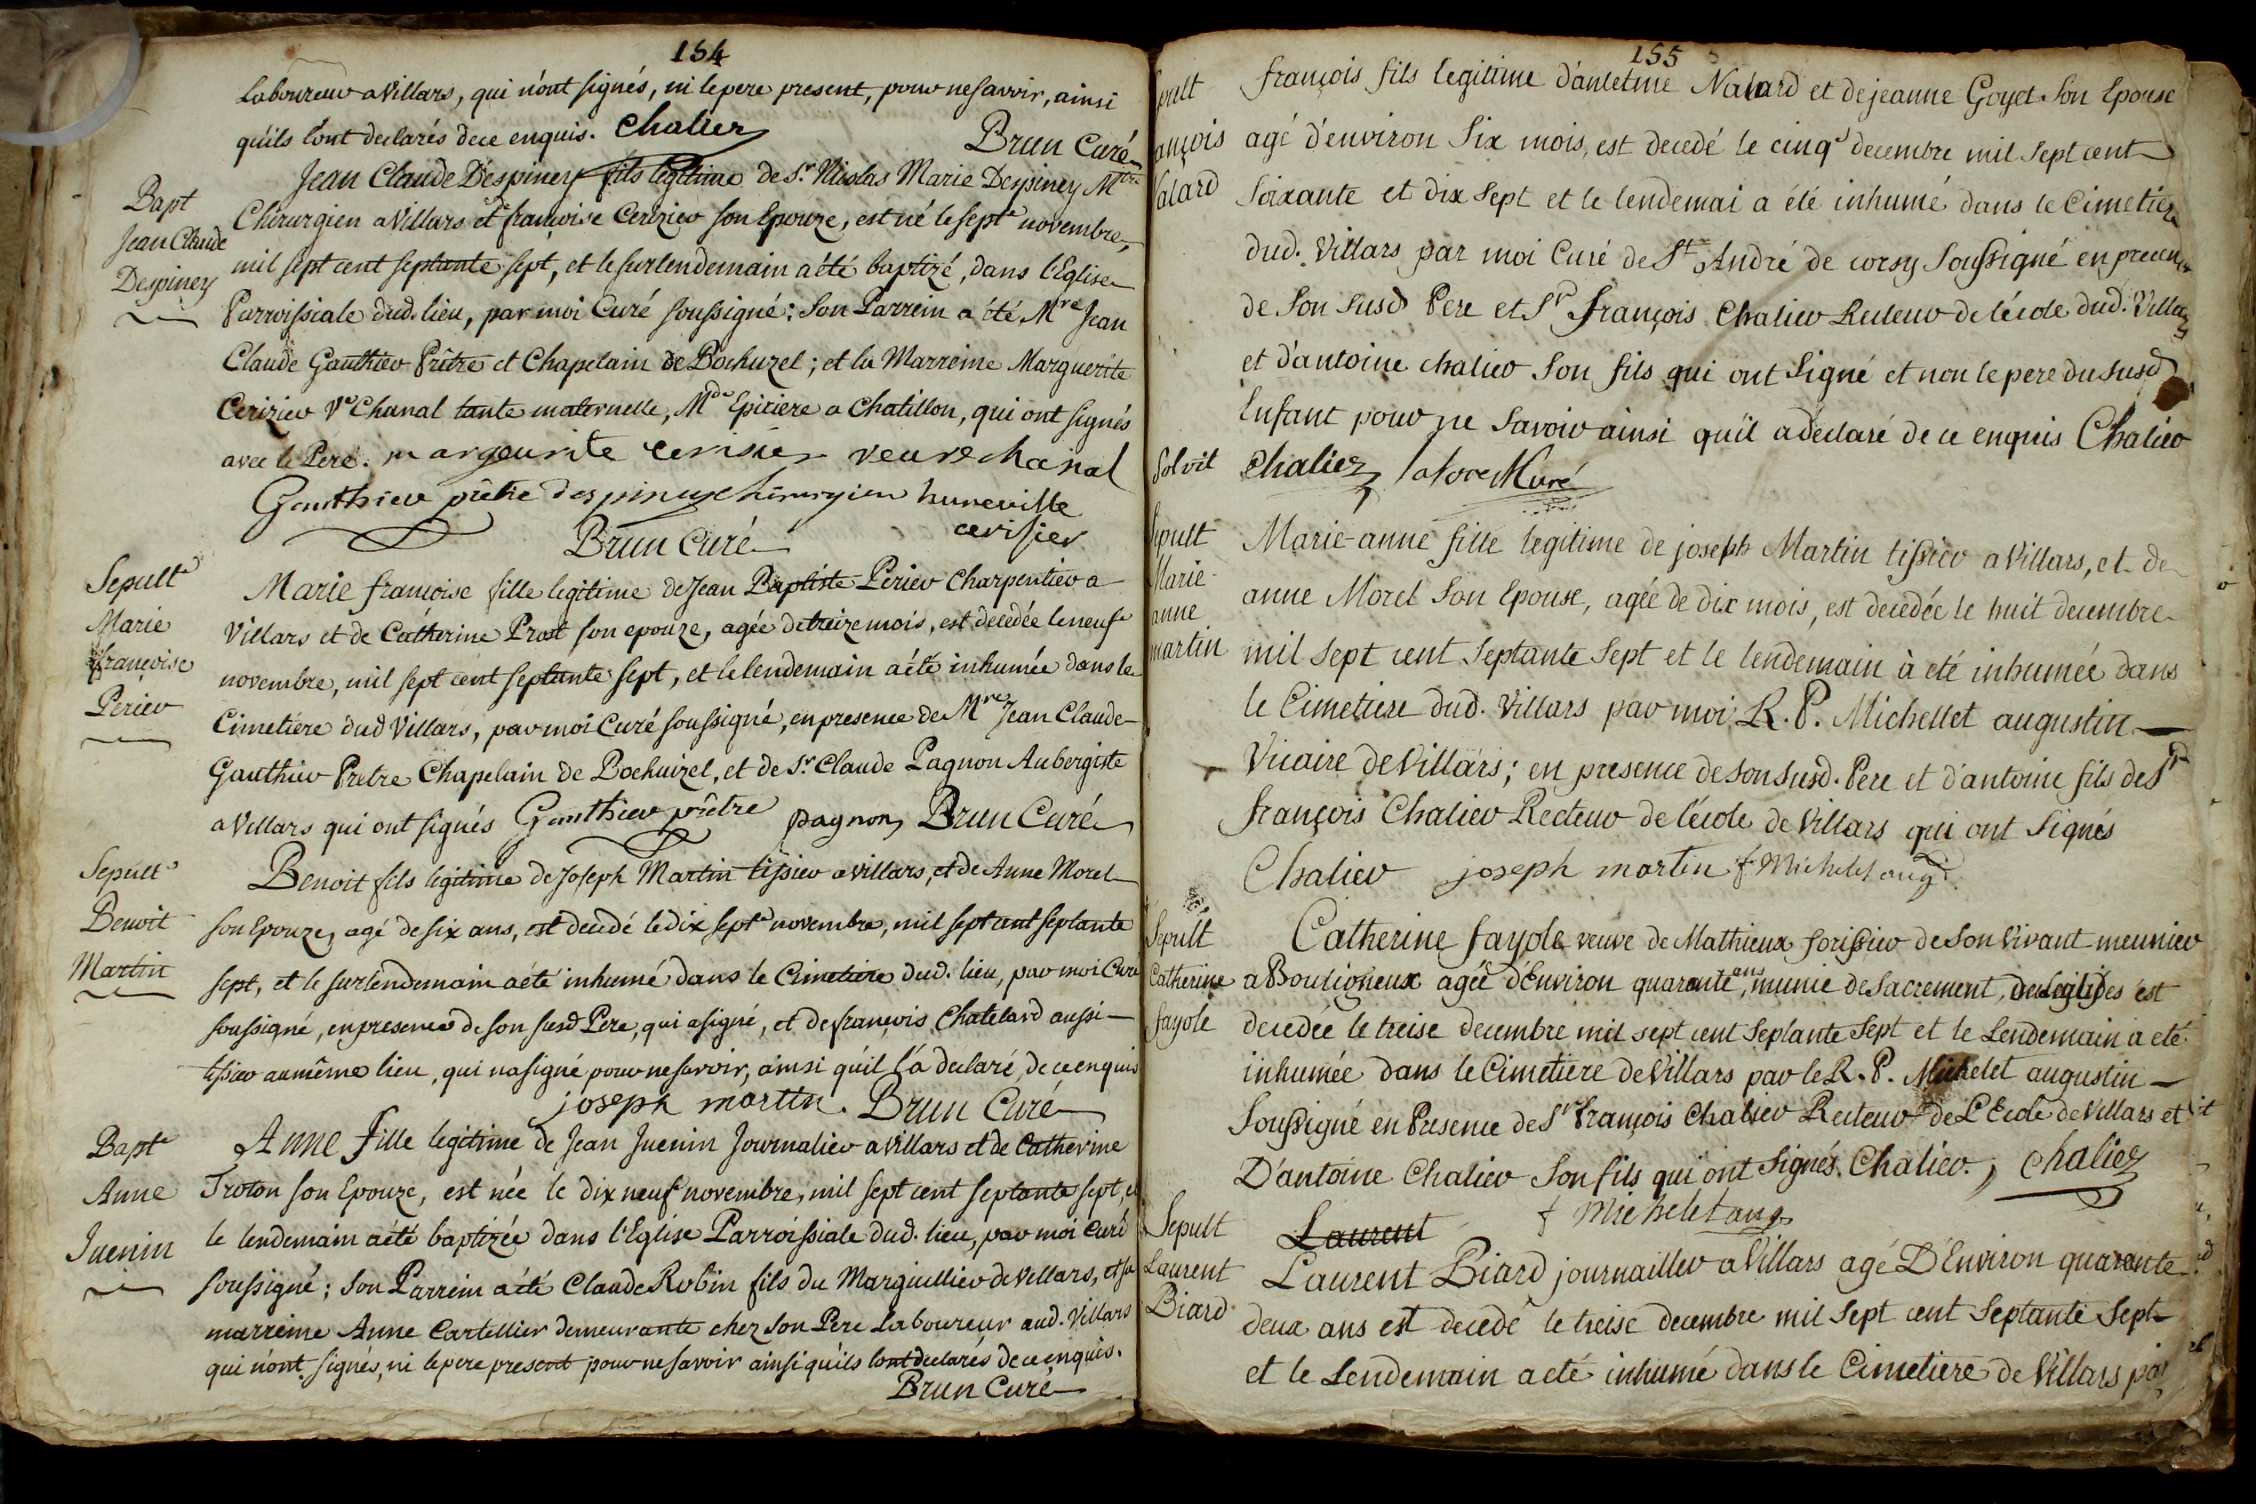 154
Laboureur a Villars, qui n'ont signés, ni le pere present, pour ne savoir, ainsi
qu'ils l'ont declarés de ce enquis. Chalier
Brun Curé
Bapt
Jean Claude
Despiney
Jean Claude Despiney fils legitime de Sr. Nicolas Marie Despiney Mtre
Chirurgien a Villars et françoise Cerizier son Epouze, est né le sept novembre,
mil sept cent septante sept, et le surlendemain a été baptizé, dans l'Eglise
Parroissiale dud. lieu, par moi Curé soussigné: Son Parrein a été Mre Jean
Claude Gauthier Prêtre et Chapelain de Bochuzel; et la Marreine Marguerite
Cerizier Ve Chanal tante maternelle, Mde Epiciere a Chatillon, qui ont signés
avec le Pere. margeurite cerisier veuve chanal
Gauthier prêtre despiney chirurgien huneville
cerisier
Brun Curé
Sepult
Marie
françoise
Perier
Marie françoise fille legitime de Jean Baptiste Perier Charpentier a
Villars et de Catherine Prost son epouze, agée de treize mois, est decedée le neuf
novembre, mil sept cent septante sept, et le lendemain a été inhumée dans le
Cimetiere dud Villars, par moi Curé soussigné, en presence de Mre Jean Claude
Gauthier Pretre Chapelain de Bochuizel, et de Sr. Claude Pagnon Aubergiste
a Villars qui ont signés Gauthier prêtre pagnon Brun Curé
Sepult
Benoit
Martin
Benoit fils legitime de Joseph Martin tissier a villars, et de Anne Morel
son Epouze, agé de six ans, est decedé le dix sept novembre, mil sept cent septante
sept, et le surlendemain a été inhumé dans le Cimetiere dud. lieu, par moi Curé
soussigné, en presence de son susd Pere, qui a signé, et de françois Chatelard aussi
tissier au même lieu, qui n'a signé pour ne savoir, ainsi qu'il l'a declaré, de ce enquis
joseph martin. Brun Curé
Bapt
Anne
Juenin
Anne fille legitime de Jean Juenin Journalier a villars et de Catherine
Troton son Epouze, est née le dix neuf novembre, mil sept cent septante sept, et
le lendemain a été baptizée dans l'Eglise Parroissiale dud. lieu, par moi Curé
soussigné; Son Parrein a été Claude Robin fils du Marguillier de Villars, et sa
marreine Anne Cartellier demeurante chez son Pere Laboureur aud. Villars
qui n'ont signés, ni le pere present pour ne savoir ainsi qu'ils l'ont declarés de ce enquis.
Brun Curé
155
pult
ançois
alard
françois fils legitime d'antelme Nalard et de jeanne Goyet son Epouse
agé d'environ Six mois, est decedé le cinq decembre mil sept cent
Soixante et dix sept et le lendemai a été inhumé dans le Cimetiere
dud. Villars par moi Curé de St André de corsy Soussigné en presence
de Son Susd Pere et Sr François Chalier Recteur de l'école dud. Villars
et d'antoine chalier Son fils qui ont Signé et non le pere du susd
Enfant pour ne Savoir ainsi qu'il a declaré de ce enquis Chalier
Solvit
Chalier
Sepult
Marie-
anne
martin
Marie-anne fille legitime de joseph Martin tissier a Villars, et de
anne Morel Son Epouse, agée de dix mois, est decedée le huit decembre
mil sept cent Septante Sept et le lendemain à eté inhumée dans
le Cimetiere dud. Villars par moi R. P. Michellet augustin
Vicaire de Villars; en presence de son susd. Pere et d'antoine fils de Sr
françois Chalier Recteur de l'école de Villars qui ont Signés
Chalier joseph martin f Michelet aug
Sepult
Catherine
fayole
Catherine fayole veuve de Mathieux forissier de son Vivant meunier
a Bouligneux agée d'Environ quarante ans, munie de Sacrement, est
decedée le treise decembre mil sept cent Septante Sept et le Lendemain a eté
inhumée dans le Cimetiere de Villars par le R. P. Michelet augustin
Soussigné en Presence de Sr François Chalier Recteur de L'Ecole de Villars et
D'antoine Chalier Son fils qui ont Signés. Chalier. Chalier
f Michelet aug
Sepult
Laurent
Biard
Laurent
Laurent Biard journaillier a Villars agé D'Environ quarante
deux ans est decedé le treise decembre mil Sept cent Septante Sept
et le Lendemain a eté inhumé dans le Cimetiere de Villars par